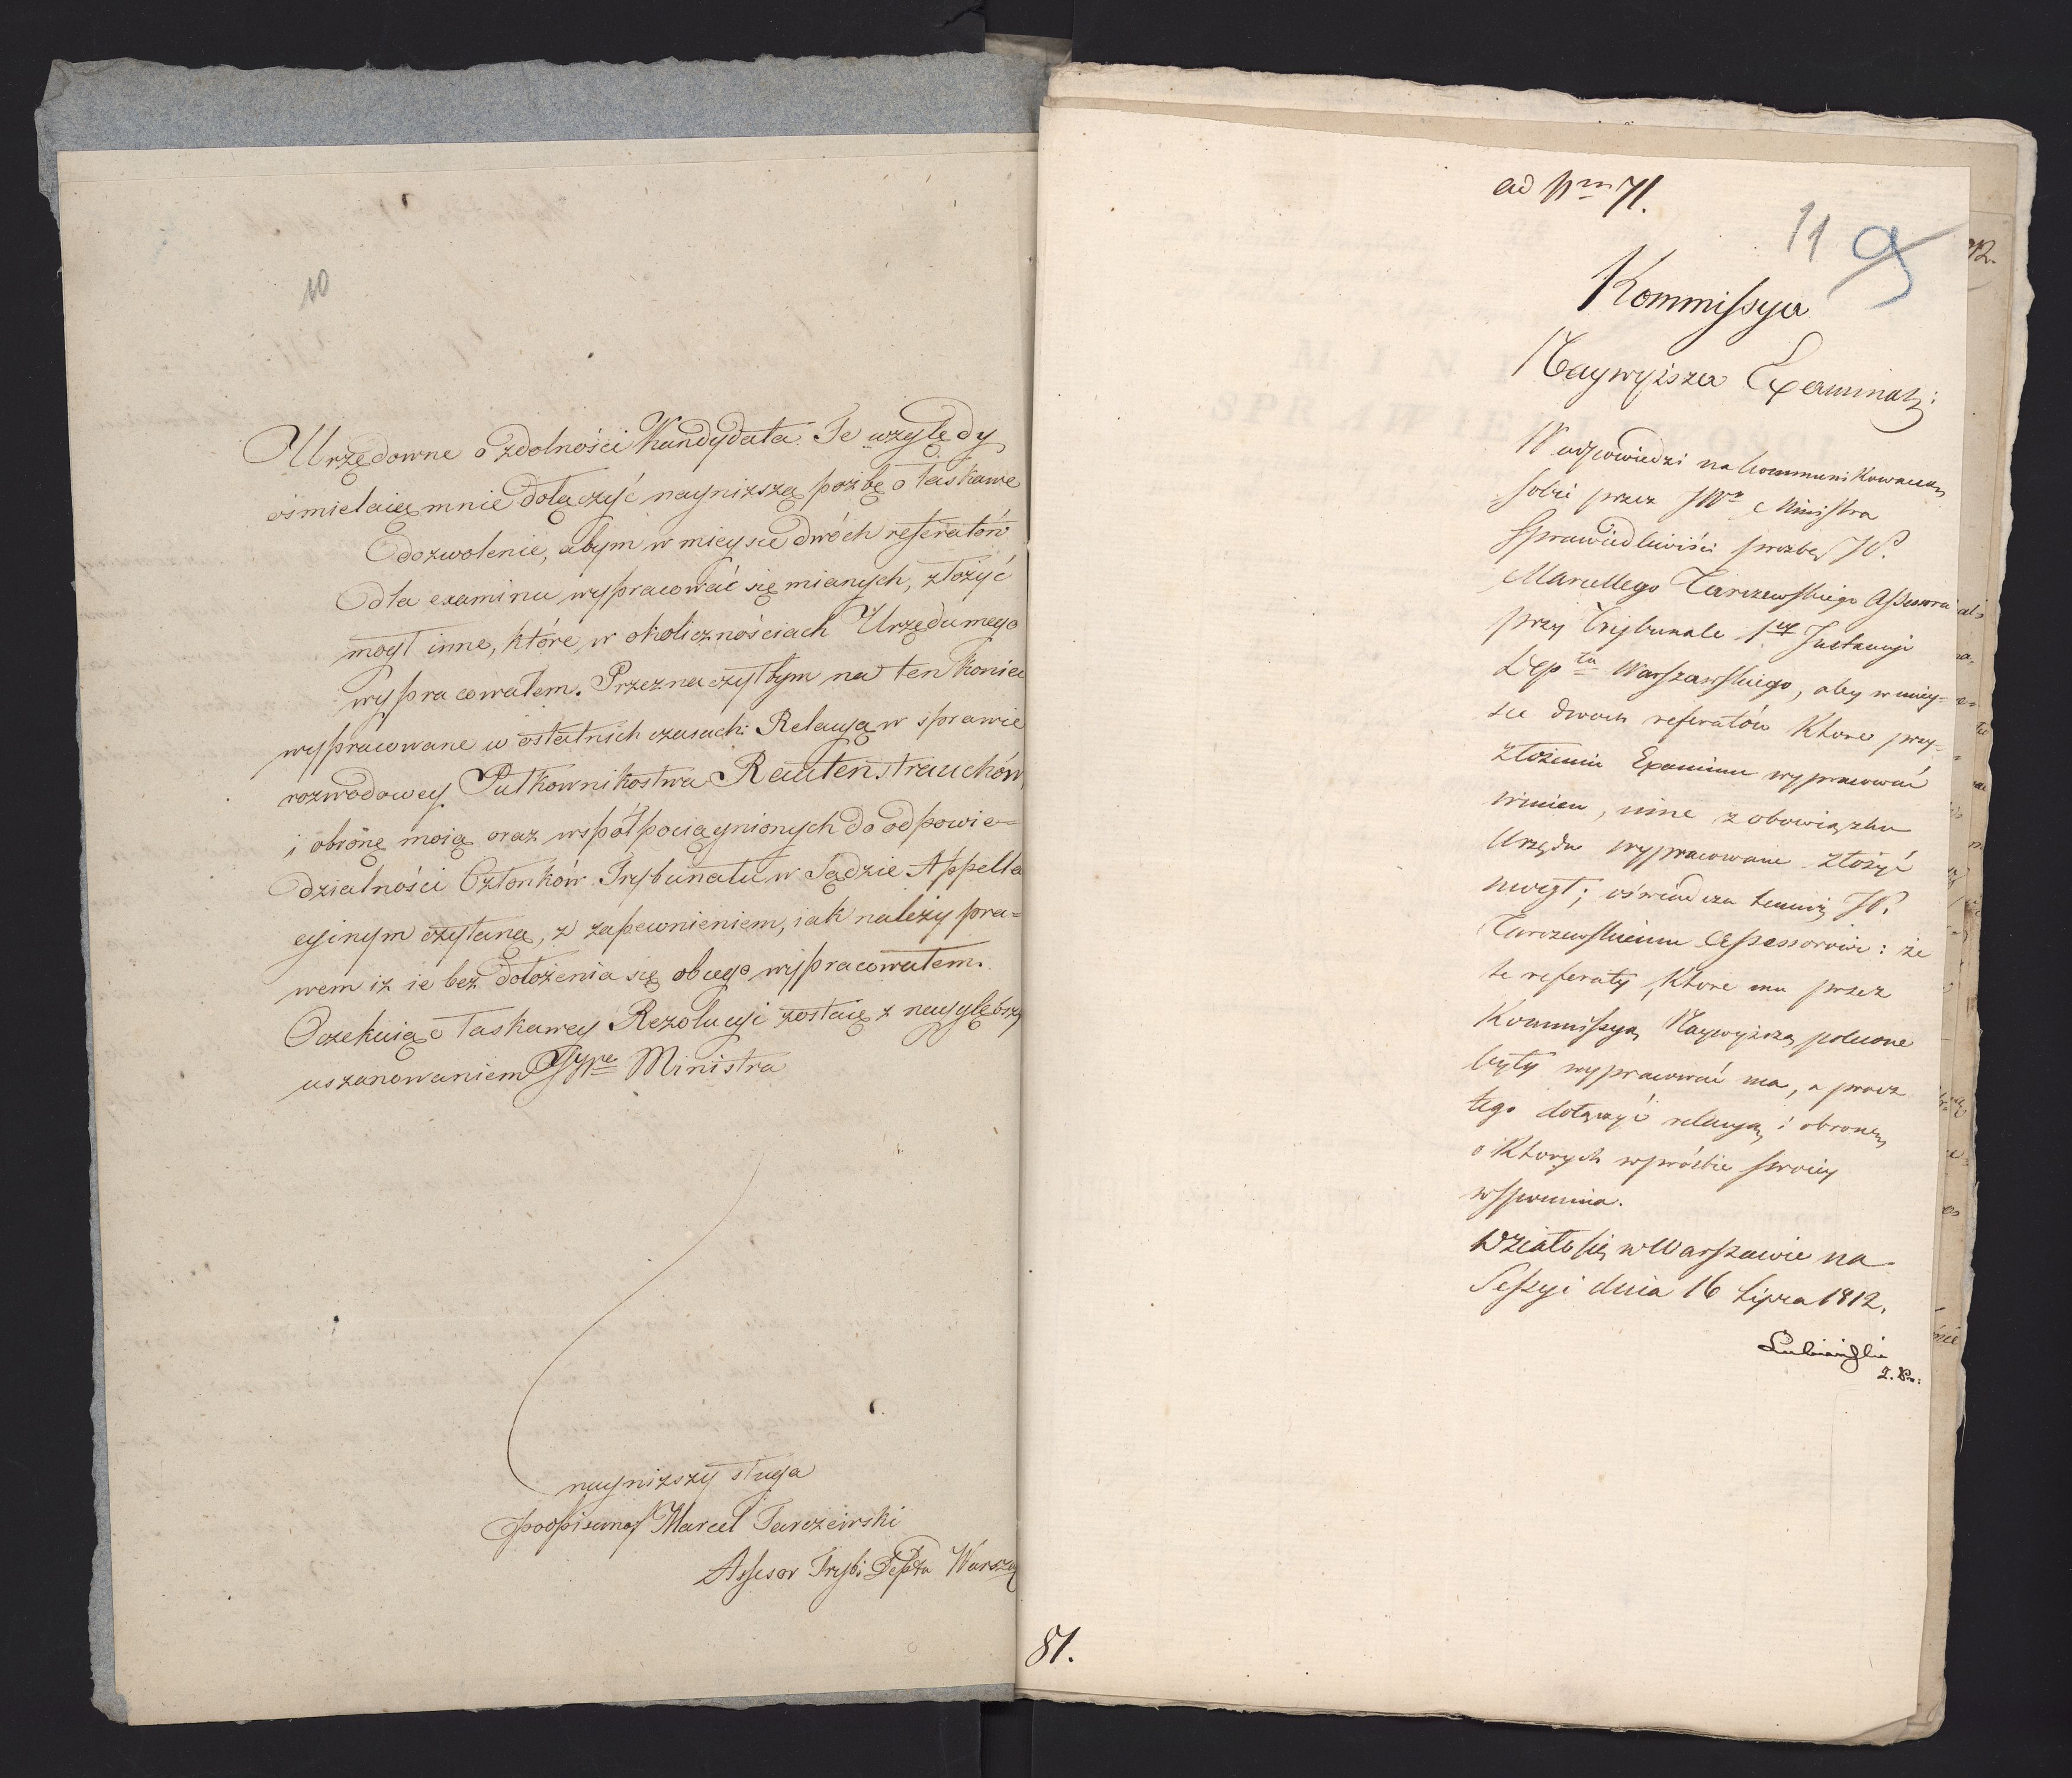 10
Urzędowne o zdolności Kandydata. Te względy
ośmielaią mnie dołączyć nayniższą poźbę o łaskawe
dozwolenie, abym w mieysce dwóch referatów
dla examinu wypracować się mianych, złożyć
mógł inne, które w okolicznościach Urzędu mego
wypracowałem. Przeznaczyłbym na ten koniec
wypracowane w ostatnich czasach: Relacyą w sprawie
rozwodowey Pułkownikostwa Rautenstrauchów,
i obronę moią oraz współpociągnionych do odpowie=
dzialności Członków Trybunału w Sądzie Appella
cyinym czytaną, z zapewnieniem, iak należy pra=
wem iż ie bez dołożenia się obcego wypracowałem.
Oczekuiąc łaskawey Rezolucyi zostaię z naygłębszy
uszanowaniem JWgo Ministra
nayniższy sługa
podpisano/ Marcel Tarczewski
Assesor Tryb: Depta Warsza
ad Nrm 71.
11 9
Kommissya
Naywyższa Examinac:
W odpowiedzi na kommunikowaną
sobie przez JWo Ministra
Sprawiedliwiści prozbę JP.
Marcellego Tarczewskiego Assessora
przy Trybunale 1ey Instancyi
Deptu Warszawskiego, aby w miey-
sce dwoch referatów Ktore przy
złożeniu Examinu wypracować
winien, inne z obowiązku
Urzędu wypracowane złożyć
mogł; oświadcza temuż JP.
Tarczewskiemu Assessorowi: że
te referaty, Ktore mu przez
Kommissyą Naywyższą polecone
były wypracować ma, a procz
tego dołączyć relacyą i obronę
o Ktorych w prośbie swoiey
wspomina.
Działo się w Warszawie na
Sessyi dnia 16 Lipca 1812.
Lubieński
81.